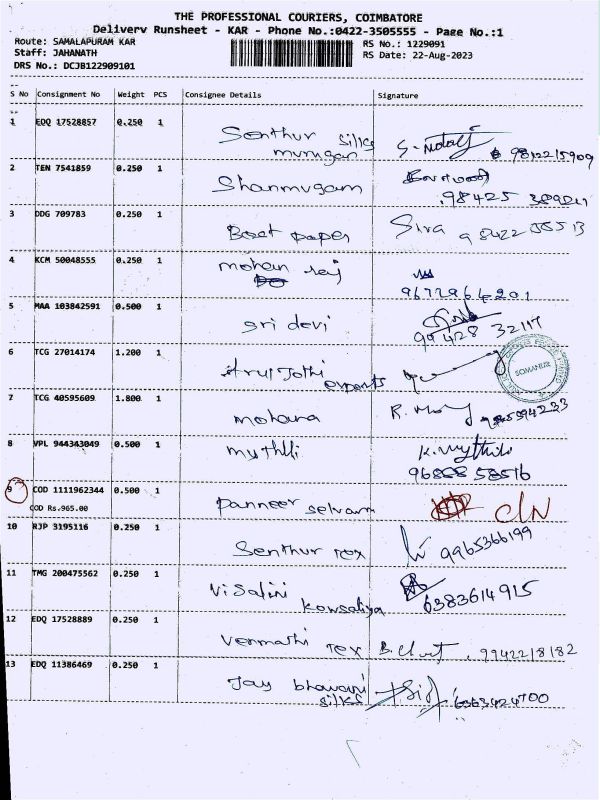 THE PROFESSIONAL COURIERS, COIMBATORE
Delivery Runsheet - KAR - Phone No.:0422-3505555 - Page No.:1
Route: SAMALAPURAM KAR
RS No.: 1229091
Staff: JAHANATH
RS Date: 22-Aug-2023
DRS No.: DCJB122909101
S No Consignment No Weight PCS Consignee Details Signature
1 EDQ 17528857 0.250 1 Senthur silks
murugan
2 TEN 7541859 0.250 1 Shanmugam
.98425
3 DDG 709783 0.250 1 Best paper Siva 98422
4 KCM 50048555 0.250 1 mohan raj
9672964201
5 MAA 103842591 0.500 1 sri devi
99428 32117
6 TCG 27014174 1.200 1 Arul Jothi
exports
SOMANUR
7 TCG 40595609 1.800 1 mohana
8 VPL 944343049 0.500 1 mythili K. Mythili
96888 58516
9 COD 1111962344 0.500 1 panneer selvam C/N
COD Rs.965.00
10 RJP 3195116 0.250 1 Senthur tex 9965366199
11 TMG 200475562 0.250 1 Visalini
kowsaliya 6383614915
12 EDQ 17528889 0.250 1 Venmathi tex .9942218182
13 EDQ 11386469 0.250 1 Jay bhavani
silks 6363424700